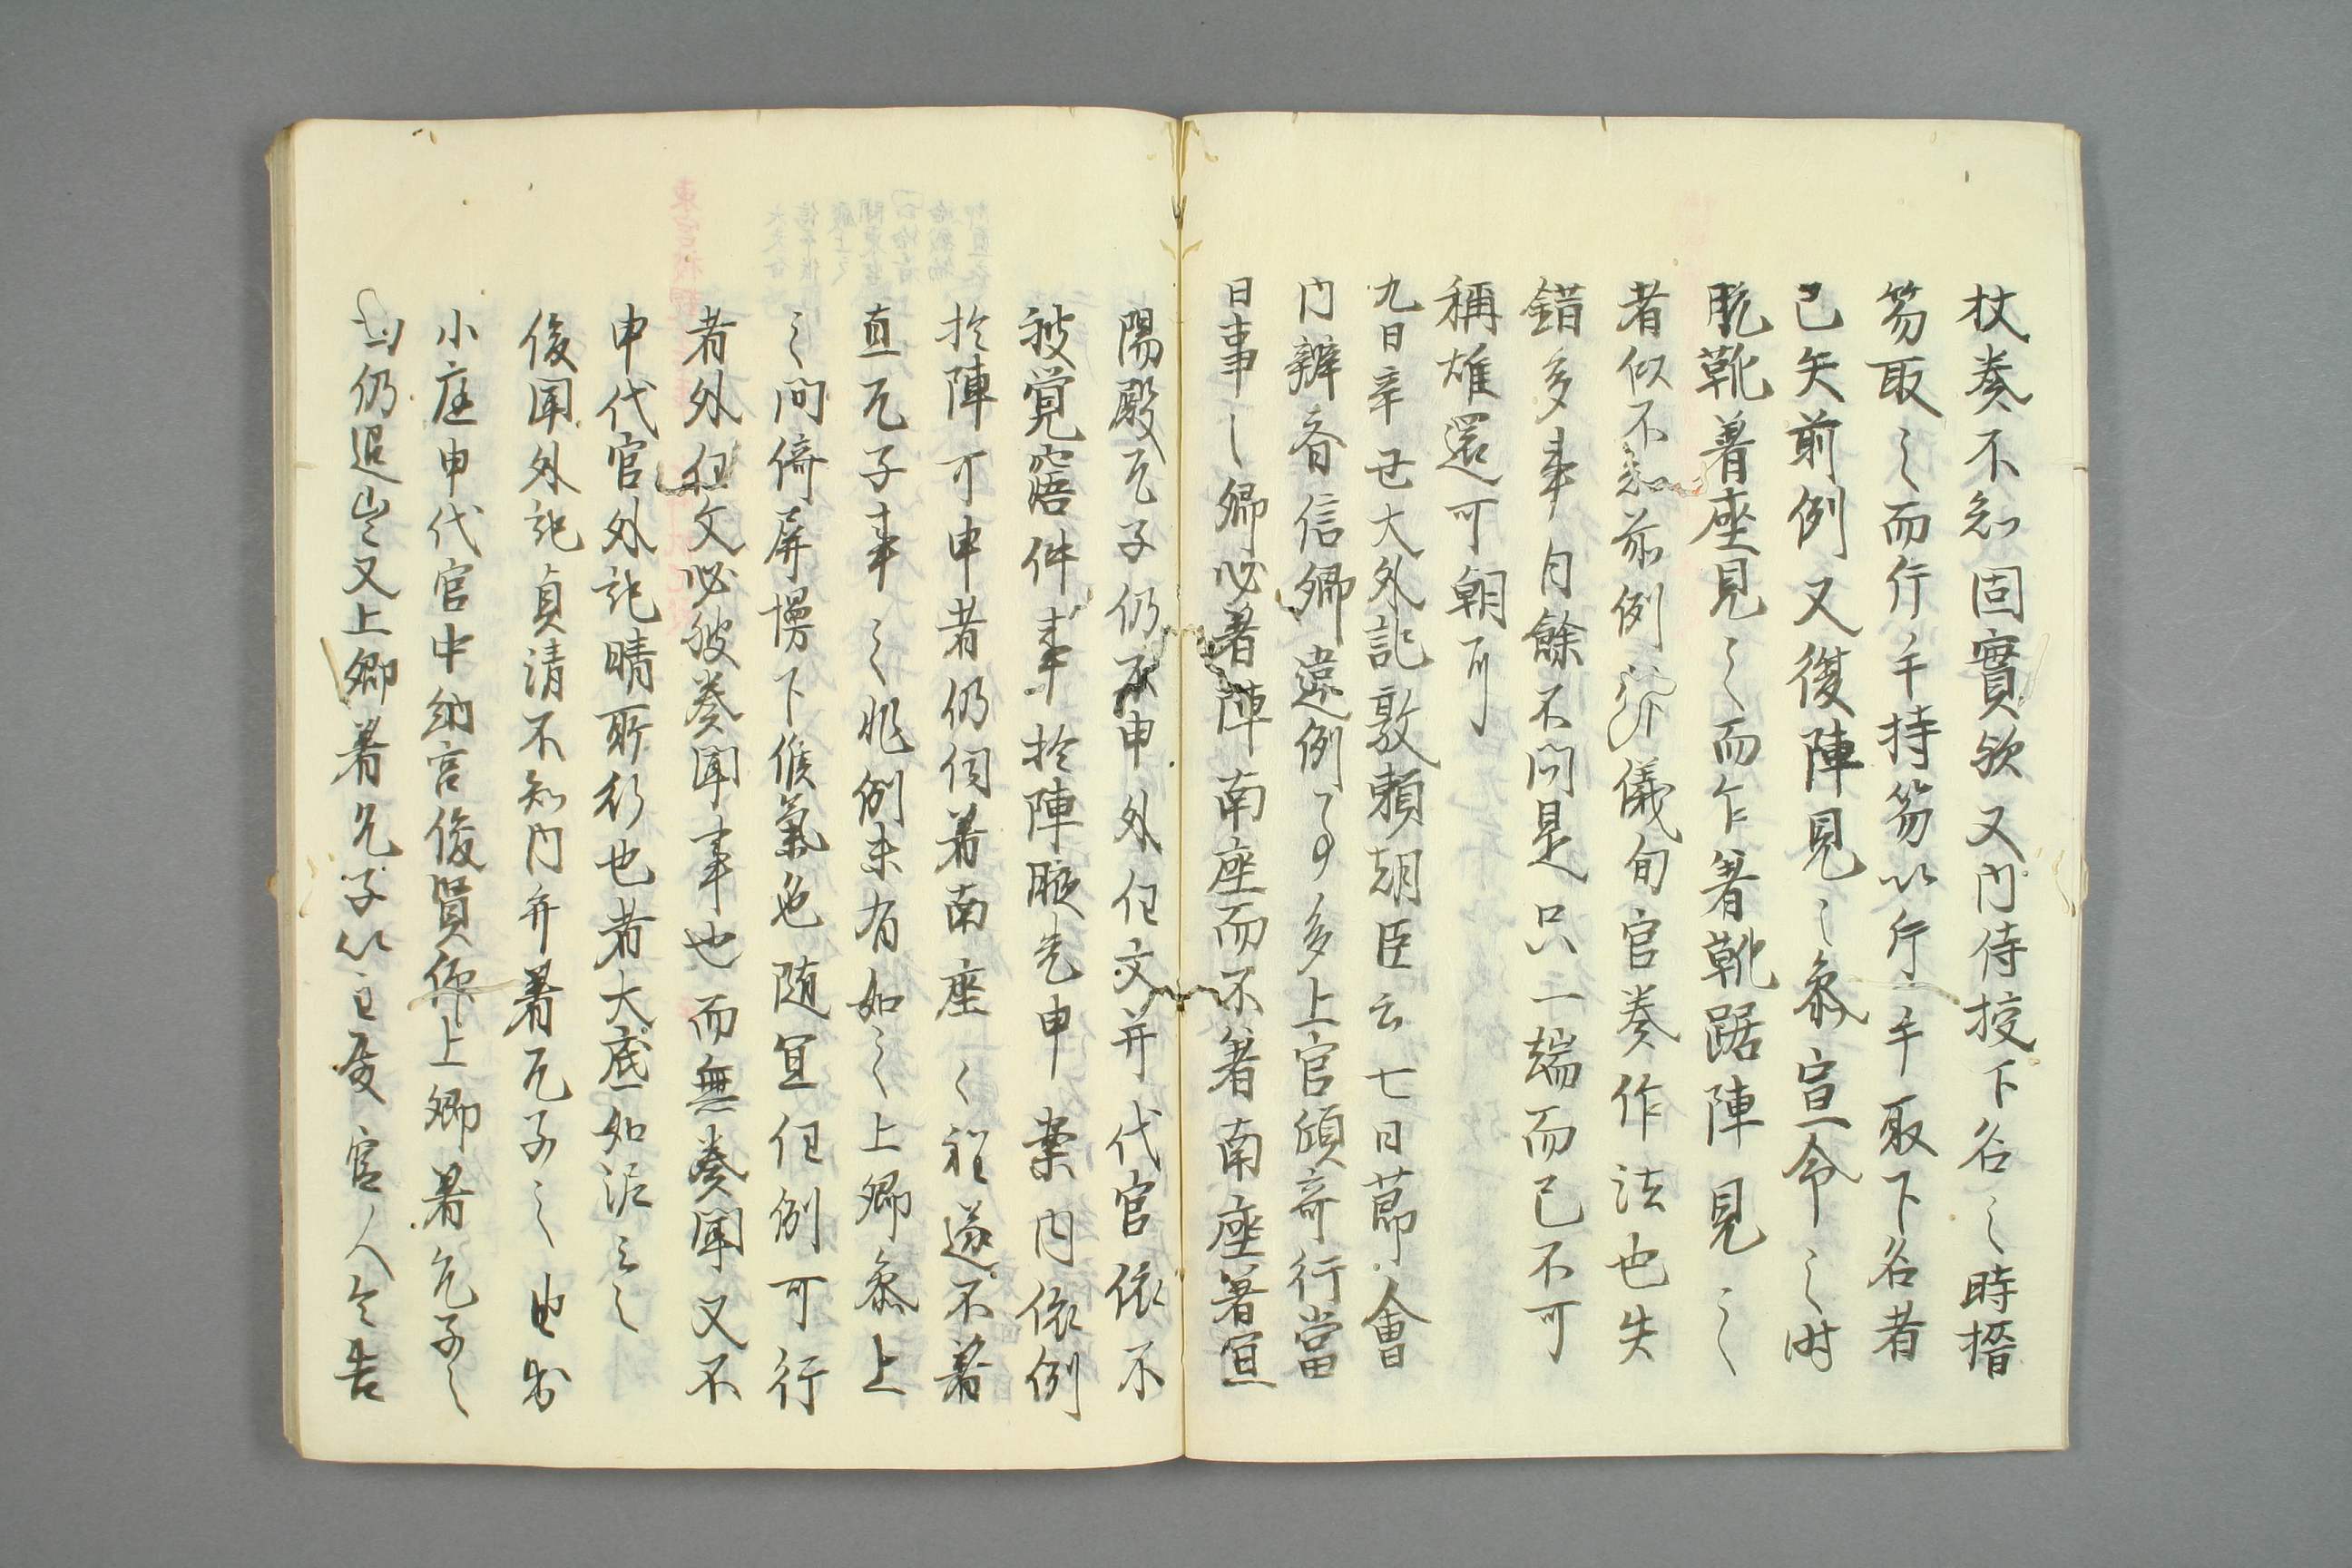 杖奏不知固實欤又内侍授下名之時搢
笏取之而行手持笏以行手取下名者
已失前例又復陣見之参宣命之時
脱靴着座見之而乍着靴踞陣見之
者似不知前例儀旬官奏作法也失
錯多事月餘不問是只一端而已不可
稱雄還可朝可
九日辛丑大外記敦頼朝臣云七日莭會
内辨斉信卿違例了多上官頗奇行當
日事之卿必着陣南座而不着南座着宜
陽殿兀子仍不申外任文并代官依不
被覚悟件事於陣腋先申案内依例
於陣可申者仍伺着南座之程遂不着
直兀子事之非例未有如之上卿参上
之間倚屏慢下候氣色随宜任例可行
者外任文必被奏聞事也而無奏聞又不
申代官外記晴所行也者大底如泥云々
後聞外記貞清不知内弁着兀子之由出
小庭申代官中納言俊賢仰上卿着兀子之
由仍退出又上卿着兀子以主殿官人令告